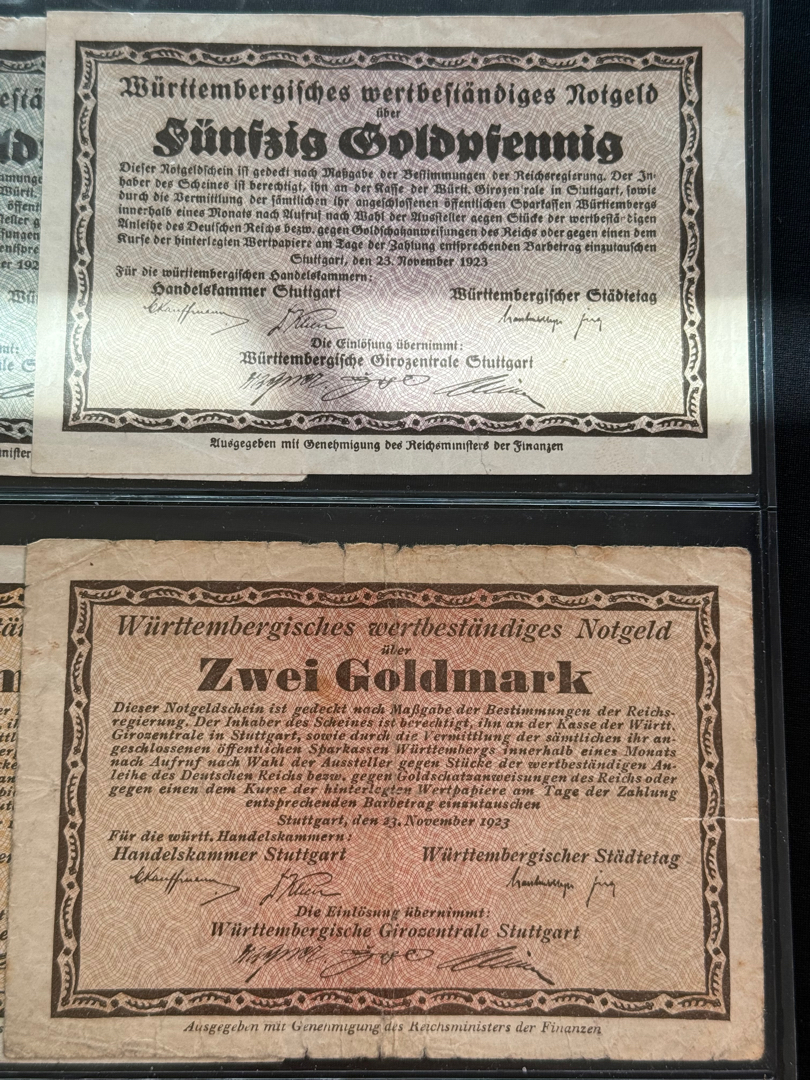 Württembergisches wertbeständiges Notgeld
über
Fünfzig Goldpfennig
Dieser Notgeldschein ist gedeckt nach Maßgabe der Bestimmungen der Reichsregierung. Der In-
haber des Scheines ist berechtigt, ihn an der Kasse der Württ. Girozentrale in Stuttgart, sowie
durch die Vermittlung der sämtlichen ihr angeschlossenen öffentlichen Sparkassen Württembergs
innerhalb eines Monats nach Aufruf nach Wahl der Aussteller gegen Stücke der wertbeständigen
Anleihe des Deutschen Reichs bezw. gegen Goldschatzanweisungen des Reichs oder gegen einen dem
Kurse der hinterlegten Wertpapiere am Tage der Zahlung entsprechenden Barbetrag einzutauschen
Stuttgart, den 23. November 1923
Für die württembergischen Handelskammern:
Handelskammer Stuttgart Württembergischer Städtetag
Die Einlösung übernimmt:
Württembergische Girozentrale Stuttgart
Ausgegeben mit Genehmigung des Reichsministers der Finanzen
Württembergisches wertbeständiges Notgeld
über
Zwei Goldmark
Dieser Notgeldschein ist gedeckt nach Maßgabe der Bestimmungen der Reichs-
regierung. Der Inhaber des Scheines ist berechtigt, ihn an der Kasse der Württ.
Girozentrale in Stuttgart, sowie durch die Vermittlung der sämtlichen ihr an-
geschlossenen öffentlichen Sparkassen Württembergs innerhalb eines Monats
nach Aufruf nach Wahl der Aussteller gegen Stücke der wertbeständigen An-
leihe des Deutschen Reichs bezw. gegen Goldschatzanweisungen des Reichs oder
gegen einen dem Kurse der hinterlegten Wertpapiere am Tage der Zahlung
entsprechenden Barbetrag einzutauschen
Stuttgart, den 23. November 1923
Für die württ. Handelskammern:
Handelskammer Stuttgart Württembergischer Städtetag
Die Einlösung übernimmt:
Württembergische Girozentrale Stuttgart
Ausgegeben mit Genehmigung des Reichsministers der Finanzen